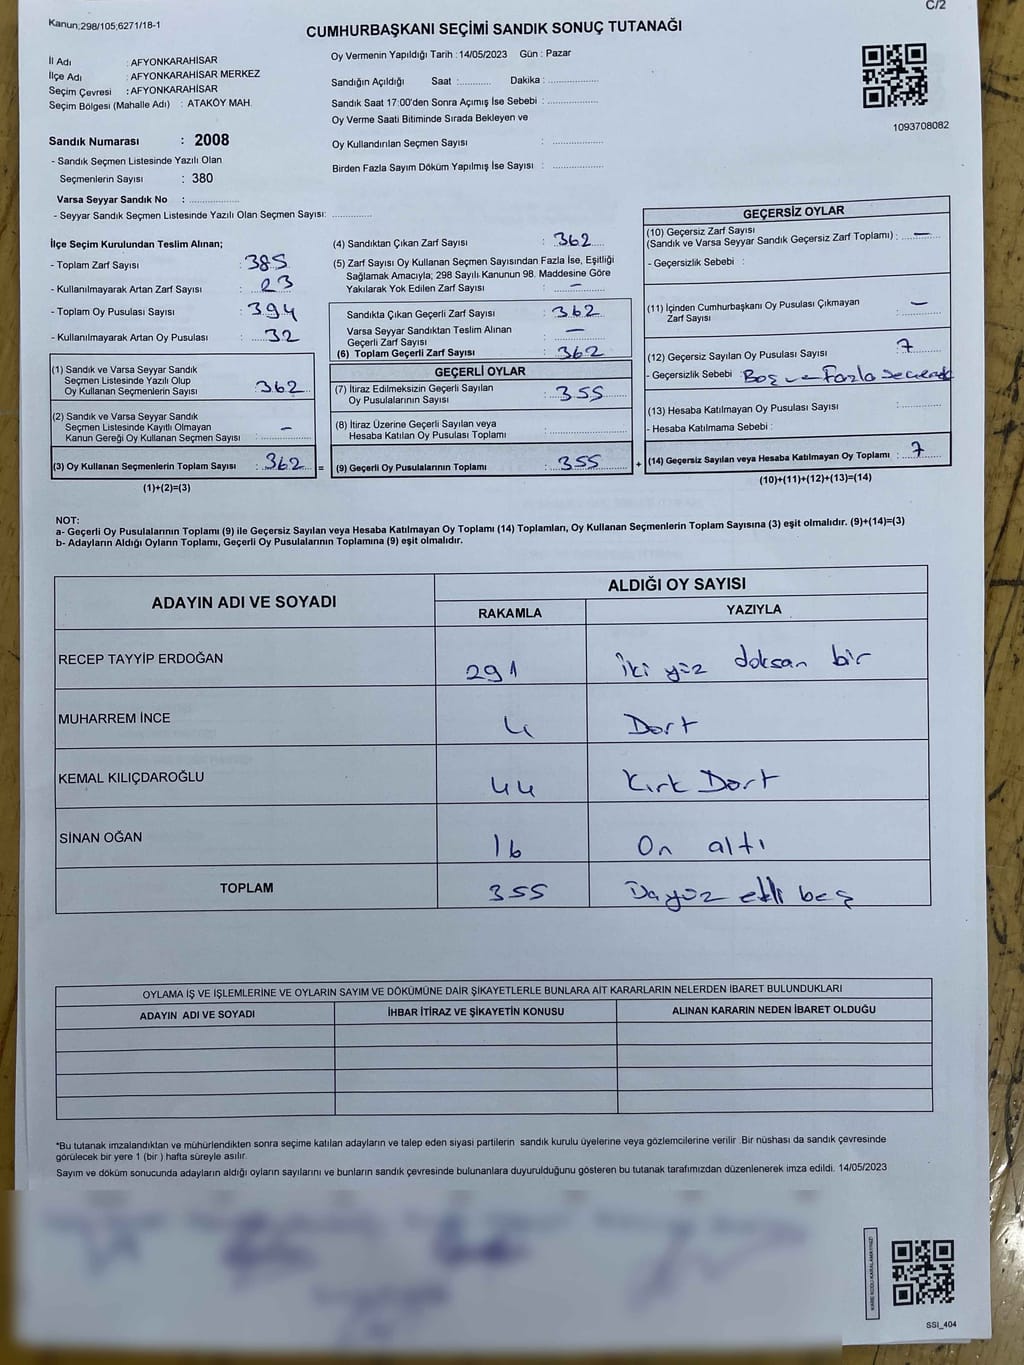 C/2
Kanun;298/105;6271/18-1
CUMHURBAŞKANI SEÇİMİ SANDIK SONUÇ TUTANAĞI
İl Adı : AFYONKARAHİSAR
İlçe Adı : AFYONKARAHİSAR MERKEZ
Seçim Çevresi : AFYONKARAHİSAR
Seçim Bölgesi (Mahalle Adı) : ATAKÖY MAH.
Sandık Numarası : 2008
- Sandık Seçmen Listesinde Yazılı Olan
Seçmenlerin Sayısı : 380
Varsa Seyyar Sandık No : ...............
- Seyyar Sandık Seçmen Listesinde Yazılı Olan Seçmen Sayısı: ............
Oy Vermenin Yapıldığı Tarih : 14/05/2023 Gün : Pazar
Sandığın Açıldığı Saat :........... Dakika : ...............
Sandık Saat 17:00'den Sonra Açımış İse Sebebi : ...............
Oy Verme Saati Bitiminde Sırada Bekleyen ve
Oy Kullandırılan Seçmen Sayısı : ...............
Birden Fazla Sayım Döküm Yapılmış İse Sayısı : ...............
1093708082
İlçe Seçim Kurulundan Teslim Alınan;
- Toplam Zarf Sayısı : 385
- Kullanılmayarak Artan Zarf Sayısı : 23
- Toplam Oy Pusulası Sayısı : 394
- Kullanılmayarak Artan Oy Pusulası : 32
(1) Sandık ve Varsa Seyyar Sandık
Seçmen Listesinde Yazılı Olup
Oy Kullanan Seçmenlerin Sayısı : 362
(2) Sandık ve Varsa Seyyar Sandık
Seçmen Listesinde Kayıtlı Olmayan
Kanun Gereği Oy Kullanan Seçmen Sayısı : -
(3) Oy Kullanan Seçmenlerin Toplam Sayısı : 362 =
(1)+(2)=(3)
(4) Sandıktan Çıkan Zarf Sayısı : 362
(5) Zarf Sayısı Oy Kullanan Seçmen Sayısından Fazla İse, Eşitliği
Sağlamak Amacıyla; 298 Sayılı Kanunun 98. Maddesine Göre
Yakılarak Yok Edilen Zarf Sayısı : -
Sandıkta Çıkan Geçerli Zarf Sayısı : 362
Varsa Seyyar Sandıktan Teslim Alınan
Geçerli Zarf Sayısı : -
(6) Toplam Geçerli Zarf Sayısı : 362
GEÇERLİ OYLAR
(7) İtiraz Edilmeksizin Geçerli Sayılan
Oy Pusulalarının Sayısı : 355
(8) İtiraz Üzerine Geçerli Sayılan veya
Hesaba Katılan Oy Pusulası Toplamı : ...............
(9) Geçerli Oy Pusulalarının Toplamı : 355 +
GEÇERSİZ OYLAR
(10) Geçersiz Zarf Sayısı
(Sandık ve Varsa Seyyar Sandık Geçersiz Zarf Toplamı) : -
- Geçersizlik Sebebi :
(11) İçinden Cumhurbaşkanı Oy Pusulası Çıkmayan
Zarf Sayısı : -
(12) Geçersiz Sayılan Oy Pusulası Sayısı : 7
- Geçersizlik Sebebi : Boş ve Fazla
(13) Hesaba Katılmayan Oy Pusulası Sayısı : ...........
- Hesaba Katılmama Sebebi :
(14) Geçersiz Sayılan veya Hesaba Katılmayan Oy Toplamı : 7
(10)+(11)+(12)+(13)=(14)
NOT:
a- Geçerli Oy Pusulalarının Toplamı (9) ile Geçersiz Sayılan veya Hesaba Katılmayan Oy Toplamı (14) Toplamları, Oy Kullanan Seçmenlerin Toplam Sayısına (3) eşit olmalıdır. (9)+(14)=(3)
b- Adayların Aldığı Oyların Toplamı, Geçerli Oy Pusulalarının Toplamına (9) eşit olmalıdır.
ADAYIN ADI VE SOYADI ALDIĞI OY SAYISI
RAKAMLA YAZIYLA
RECEP TAYYİP ERDOĞAN 291 İki yüz doksan bir
MUHARREM İNCE 4 Dort
KEMAL KILIÇDAROĞLU 44 Kırk Dort
SİNAN OĞAN 16 On altı
TOPLAM 355 elli beş
OYLAMA İŞ VE İŞLEMLERİNE VE OYLARIN SAYIM VE DÖKÜMÜNE DAİR ŞİKAYETLERLE BUNLARA AİT KARARLARIN NELERDEN İBARET BULUNDUKLARI
ADAYIN ADI VE SOYADI İHBAR İTİRAZ VE ŞİKAYETİN KONUSU ALINAN KARARIN NEDEN İBARET OLDUĞU
*Bu tutanak imzalandıktan ve mühürlendikten sonra seçime katılan adayların ve talep eden siyasi partilerin sandık kurulu üyelerine veya gözlemcilerine verilir .Bir nüshası da sandık çevresinde
görülecek bir yere 1 (bir ) hafta süreyle asılır.
Sayım ve döküm sonucunda adayların aldığı oyların sayılarını ve bunların sandık çevresinde bulunanlara duyurulduğunu gösteren bu tutanak tarafımızdan düzenlenerek imza edildi. 14/05/2023
KARE KODU KARALAMAYINIZ!
SSI_404